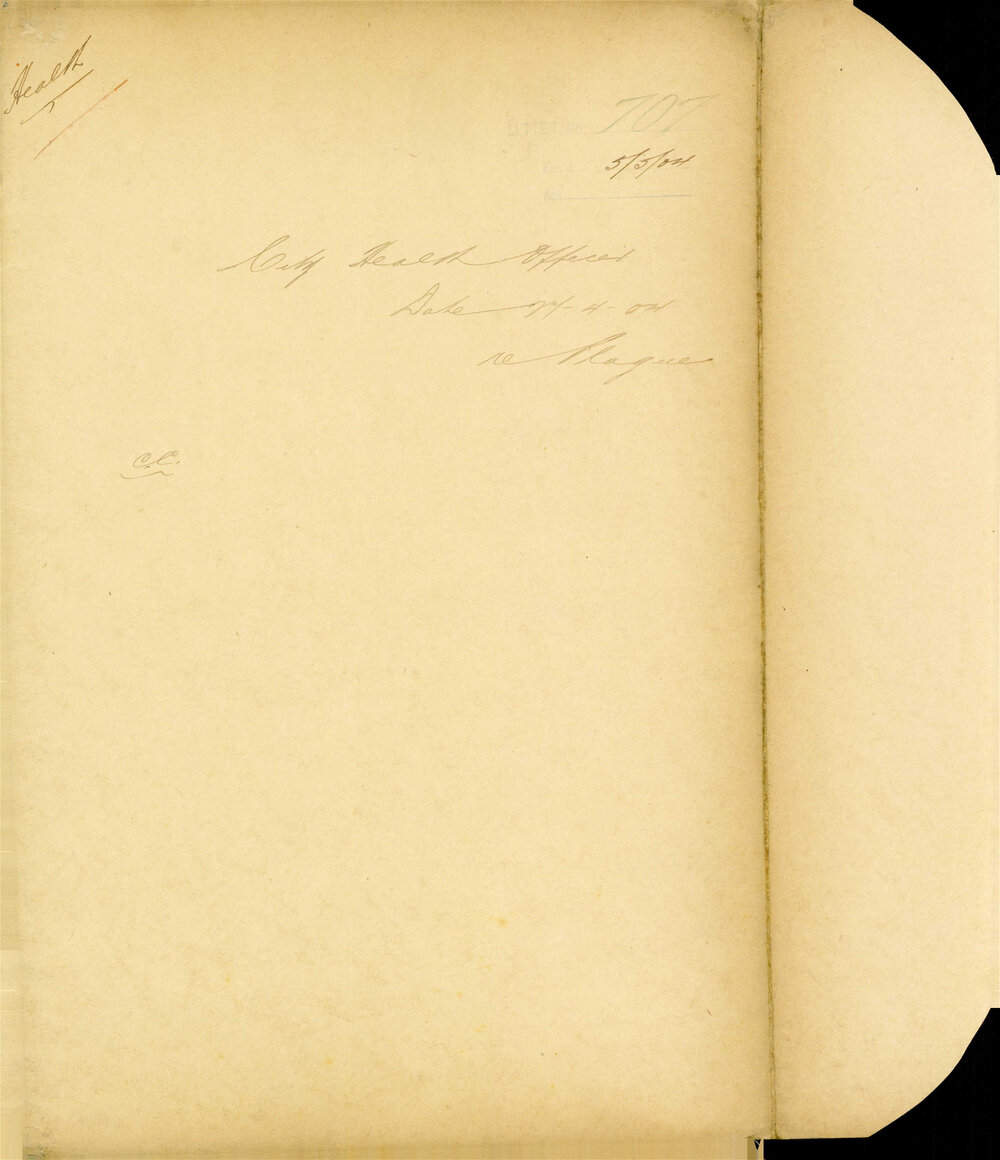 Health
LETTER No. 707
5/5/04
City Health Officer
Date 27-4-04
re Plague
C.C.